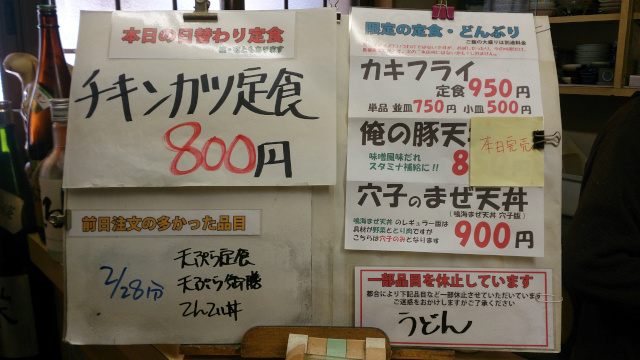 本日の日替わり定食
チキンカツ定食
800円
前日注文の多かった品目
2/28分
天ぷら定食
天ぷら御膳
てんてい丼
限定の定食・どんぶり
ご飯の大盛りは別途料金
カキフライ
定食 950円
単品 並皿 750円 小皿 500円
俺の豚天
味噌風味だれ
スタミナ補給に!!
8
本日完売
穴子のまぜ天丼
(鳴海まぜ天丼 穴子版)
鳴海まぜ天丼 のレギュラー版は
具材が野菜ととり肉ですが
こちらは穴子のみとなります
900円
一部品目を休止しています
都合により下記品目など一部休止させていただいています
ご迷惑をおかけしますがご了承ください
うどん